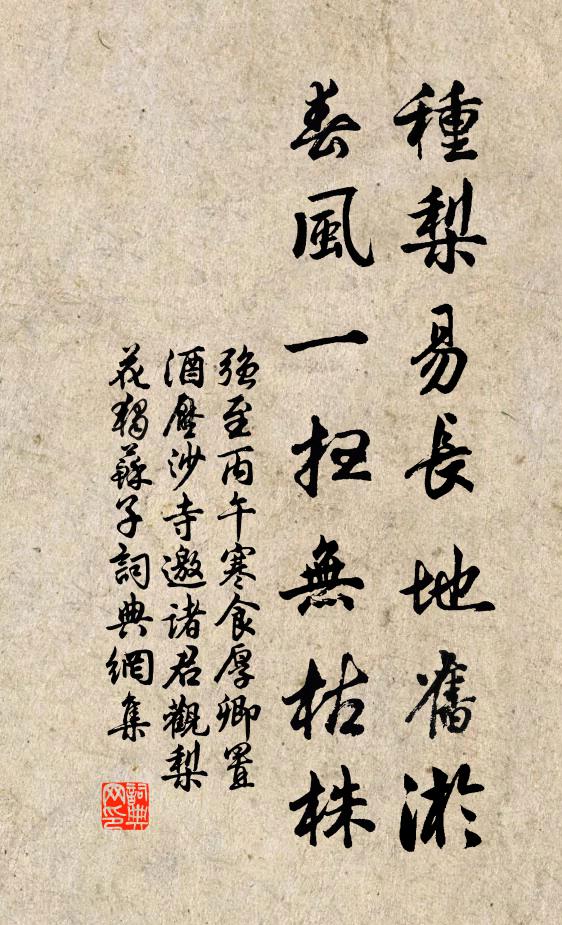 種梨易長地舊淤
春風一扫無枯株
強至丙午寒食厚卿置
酒壓沙寺邀諸君觀梨
花獨蘇子詞典網集
詞典
网印